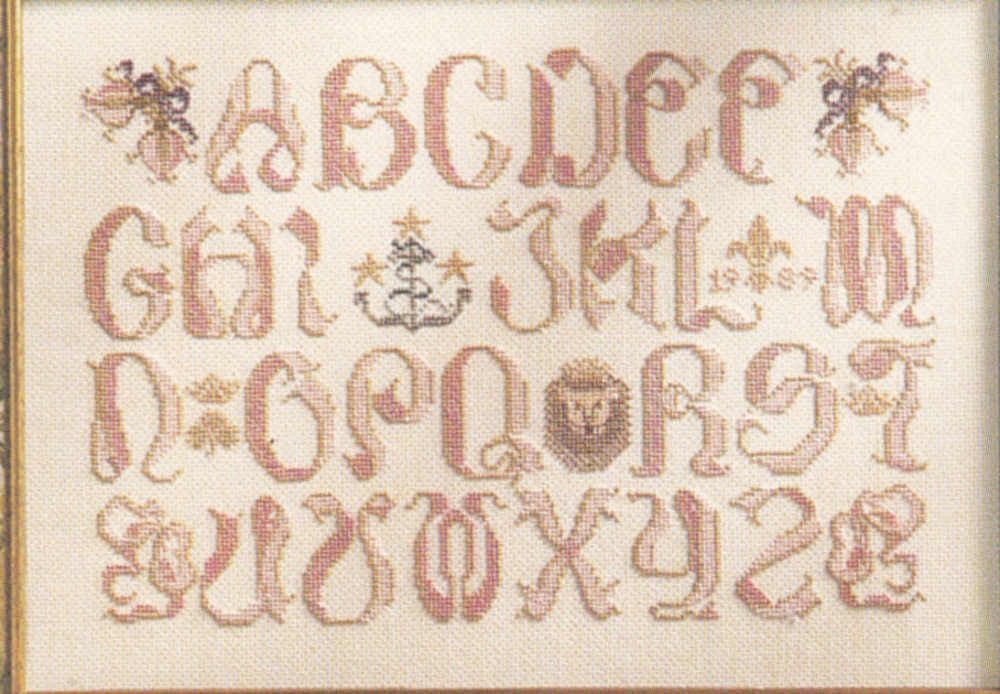 ABCDEF
GHIJKL 1989 M
NOPQRST
UVWXYZ